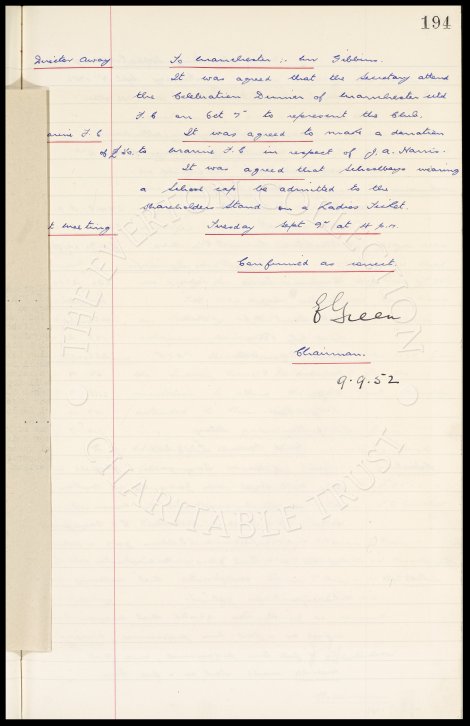 194
Director Away To Manchester :- Mr Gibbins.
It was agreed that the Secretary attend
the Celebration Dinner of Manchester Utd
F.C on Oct 7th to represent the Club.
F.C It was agreed to make a donation
of £ to Marine F.C in respect of J.A. Harris.
It was agreed that Schoolboys wearing
a School cap be admitted to the
Shareholders Stand on a Ladies Ticket.
t Meeting Tuesday Sept 9th at 4 p.m.
Confirmed as correct
E Green
Chairman.
9.9.52
THE EVERTON COLLECTION
CHARITABLE TRUST